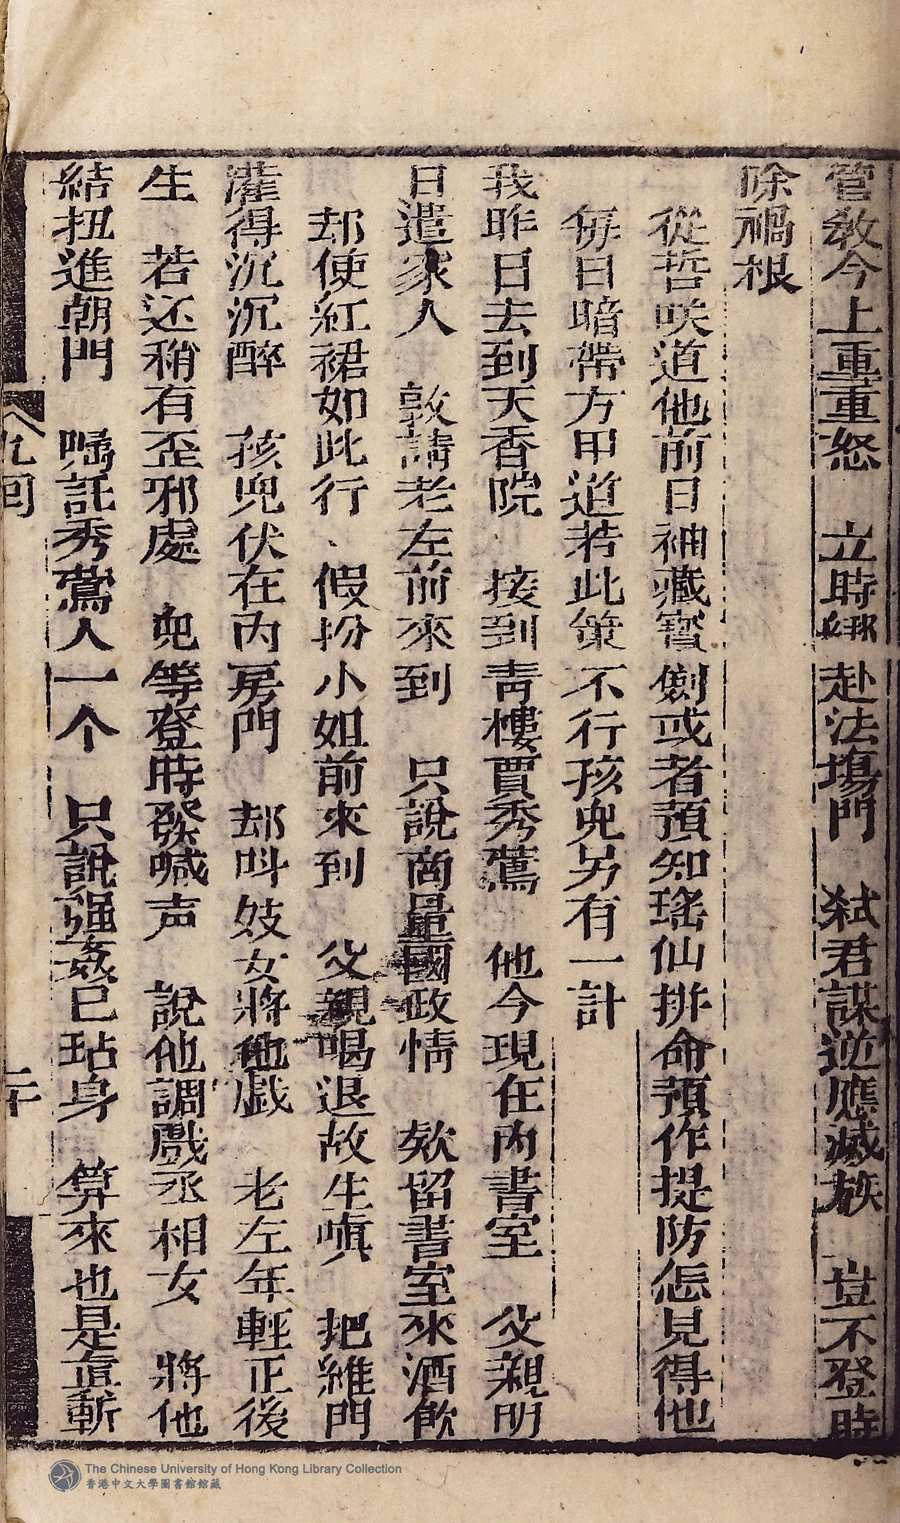 管教今上重重怒　立時綁赴法場門　弑君謀逆應滅族　豈不登時
除禍根
從哲咲道他前日袖藏寳劍或者預知瑤仙拼命預作提防怎見得他
每日暗帶方甲道若此策不行孩兒另有一計
我昨日去到天香院　接到靑樓賈秀鶯　他今現在內書室　父親明
日遣家人　敦請老左前來到　只說商量國政情　欸留書室來酒飮
却使紅裙如此行、假扮小姐前來到　父親喝退故生嗔　把維門
灌得沉沉醉　孩兒伏在內房門　却呌妓女將他戱　老左年輕正後
生　若还稍有歪邪處　兒等登時發喊声　說他調戲丞相女　將他
結扭進朝門　囑託秀鶯人一个　只說强姦已玷身　算來也是直斬
九回
二十
The Chinese University of Hong Kong Library Collection
香港中文大學圖書館館藏